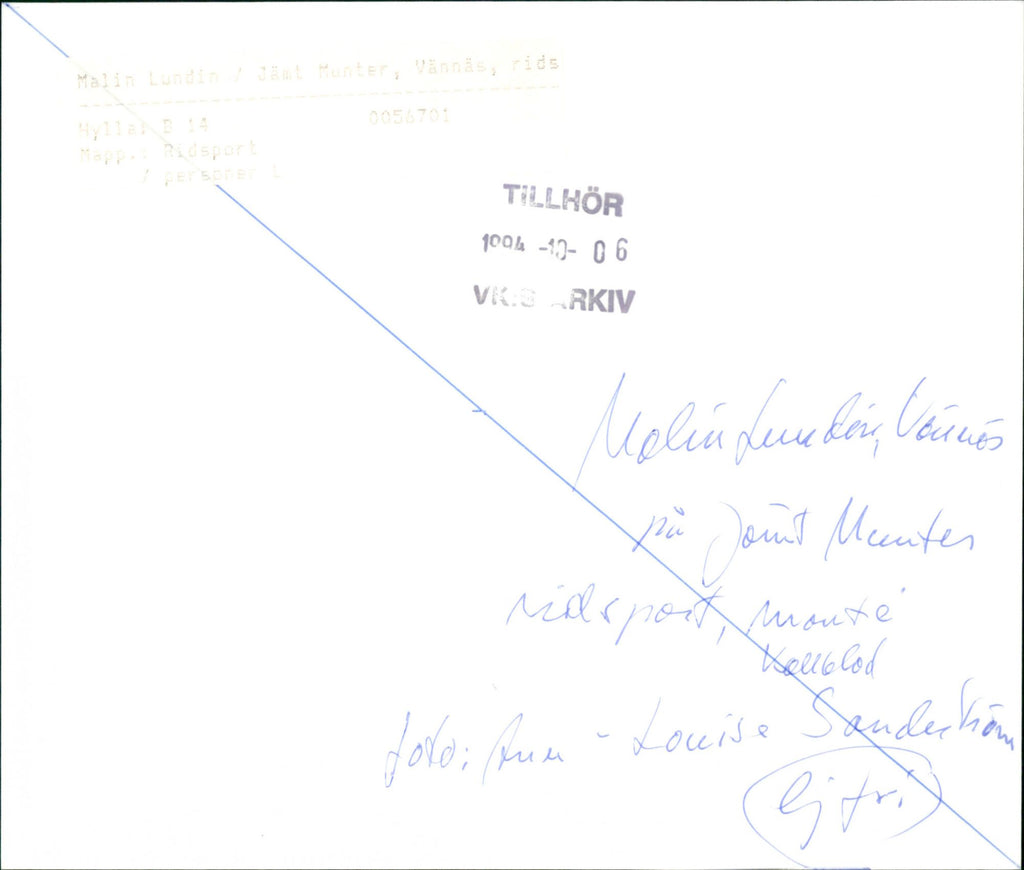 Malin Lundin / Jämt Munter, Vännäs, rids
Hylla: B 14 0056701
Mapp.: Ridsport
/ personer L
TILLHÖR
1994 -10- 06
VK:S ARKIV
Malin Lundin, Vännäs
på Jämt Munter
ridsport, monté
kallblod
foto: Ann-Louise Sandström
Ej fri